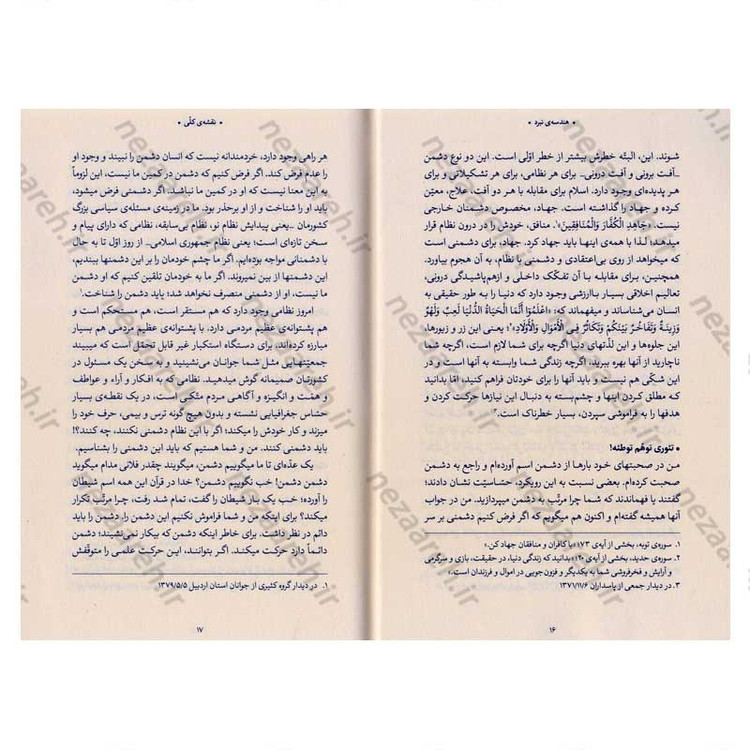 • هندسه‌ی نبرد •
شوند. این، البتّه خطرش بیشتر از خطر اوّلی است. این دو نوع دشمن
ـ‌آفت برونی و آفت درونی‌ـ برای هر نظامی، برای هر تشکیلاتی و برای
هر پدیده‌ای وجود دارد. اسلام برای مقابله با هر دو آفت، علاج، معیّن
کرده و جهاد را گذاشته است. جهاد، مخصوص دشمنان خارجی
نیست. «جٰاهِدِ الْکُفّٰارَ وَالْمُنٰافِقِینَ»۱. منافق، خودش را در درون نظام قرار
میدهد؛ لذا با همه‌ی اینها باید جهاد کرد. جهاد، برای دشمنی است
که میخواهد از روی بی‌اعتقادی و دشمنی با نظام، به آن هجوم بیاورد.
همچنین، برای مقابله با آن تفکّک داخلی و ازهم‌پاشیدگی درونی،
تعالیم اخلاقی بسیار باارزشی وجود دارد که دنیا را به طور حقیقی به
انسان می‌شناساند و میفهماند که: «اعْلَمُوٓا أَنَّمَا الْحَیٰاةُ الدُّنْیٰا لَعِبٌ وَلَهْوٌ
وَزِینَةٌ وَتَفٰاخُرٌ بَیْنَکُمْ وَتَکٰاثُرٌ فِی الْأَمْوٰالِ وَالْأَوْلٰادِ»۲؛ یعنی این زر و زیورها،
این جلوه‌ها و این لذّتهای دنیا اگرچه برای شما لازم است، اگرچه شما
ناچارید از آنها بهره ببرید، اگرچه زندگی شما وابسته به آنها است و در
این شکّی هم نیست و باید آنها را برای خودتان فراهم کنید، امّا بدانید
که مطلق کردن اینها و چشم‌بسته به دنبال این نیازها حرکت کردن و
هدفها را به فراموشی سپردن، بسیار خطرناک است.۳
• تئوری توهّم توطئه!
من در صحبتهای خود بارها از دشمن اسم آورده‌ام و راجع به دشمن
صحبت کرده‌ام. بعضی نسبت به این رویکرد، حسّاسیّت نشان دادند؛
گفتند یا فهماندند که شما چرا مرتّب به دشمن میپردازید. من در جواب
آنها همیشه گفته‌ام و اکنون هم میگویم که اگر فرض کنیم دشمنی بر سر
۱. سوره‌ی توبه، بخشی از آیه‌ی ۷۳؛ «با کافران و منافقان جهاد کن.»
۲. سوره‌ی حدید، بخشی از آیه‌ی ۲۰؛ «بدانید که زندگی دنیا، در حقیقت، بازی و سرگرمی
و آرایش و فخرفروشی شما به یکدیگر و فزون‌جویی در اموال و فرزندان است.»
۳. در دیدار جمعی از پاسداران ۱۳۷۱/۱۱/۶
۱۶
• نقشه‌ی کلّی •
هر راهی وجود دارد، خردمندانه نیست که انسان دشمن را نبیند و وجود او
را عدم فرض کند. اگر فرض کنیم که دشمن در کمین ما نیست، این لزوماً
به این معنا نیست که او در کمین ما نباشد. اگر دشمنی فرض میشود،
باید او را شناخت و از او برحذر بود. ما در زمینه‌ی مسئله‌ی سیاسی بزرگ
کشورمان ـ‌یعنی پیدایش نظام نو، نظام بی‌سابقه، نظامی که دارای پیام و
سخن تازه‌ای است؛ یعنی نظام جمهوری اسلامی‌ـ از روز اوّل تا به حال
با دشمنانی مواجه بوده‌ایم. اگر ما چشم خودمان را بر این دشمنها ببندیم،
این دشمنها از بین نمیروند. اگر ما به خودمان تلقین کنیم که او دشمن
ما نیست، او از دشمنی منصرف نخواهد شد؛ باید دشمن را شناخت.۱
امروز نظامی وجود دارد که هم مستقر است، هم مستحکم است و
هم پشتوانه‌ی عظیم مردمی دارد. با پشتوانه‌ی عظیم مردمی هم بسیار
مبارزه کرده‌اند. برای دستگاه استکبار غیر قابل تحمّل است که میبیند
جمعیّتهایی مثل شما جوانان می‌نشینید و به سخن یک مسئول در
کشورتان صمیمانه گوش میدهید. نظامی که به افکار و آراء و عواطف
و همّت و انگیزه و آگاهی مردم متّکی است، در یک نقطه‌ی بسیار
حسّاس جغرافیایی نشسته و بدون هیچ گونه ترس و بیمی، حرف خود را
میزند و کار خودش را میکند؛ اگر با این نظام دشمنی نکنند، چه کنند؟!
باید دشمنی کنند. من و شما هستیم که باید این دشمنی را بشناسیم.
یک عدّه‌ای تا ما میگوییم دشمن، میگویند چقدر فلانی مدام میگوید
دشمن! خب نگوییم دشمن؟ خدا در قرآن این همه اسم شیطان
را آورده؛ خب یک بار شیطان را گفت، تمام شد رفت، چرا مرتّب تکرار
میکند؟ برای اینکه من و شما فراموش نکنیم این دشمن را. دشمن را باید
دائم در نظر داشت. برای خاطر اینکه دشمن که بیکار نمی‌نشیند؛ دشمن
دائماً دارد حرکت میکند. اگر بتوانند، این حرکت علمی را متوقّفش
۱. در دیدار گروه کثیری از جوانان استان اردبیل ۱۳۷۹/۵/۵
۱۷
nezaareh.ir